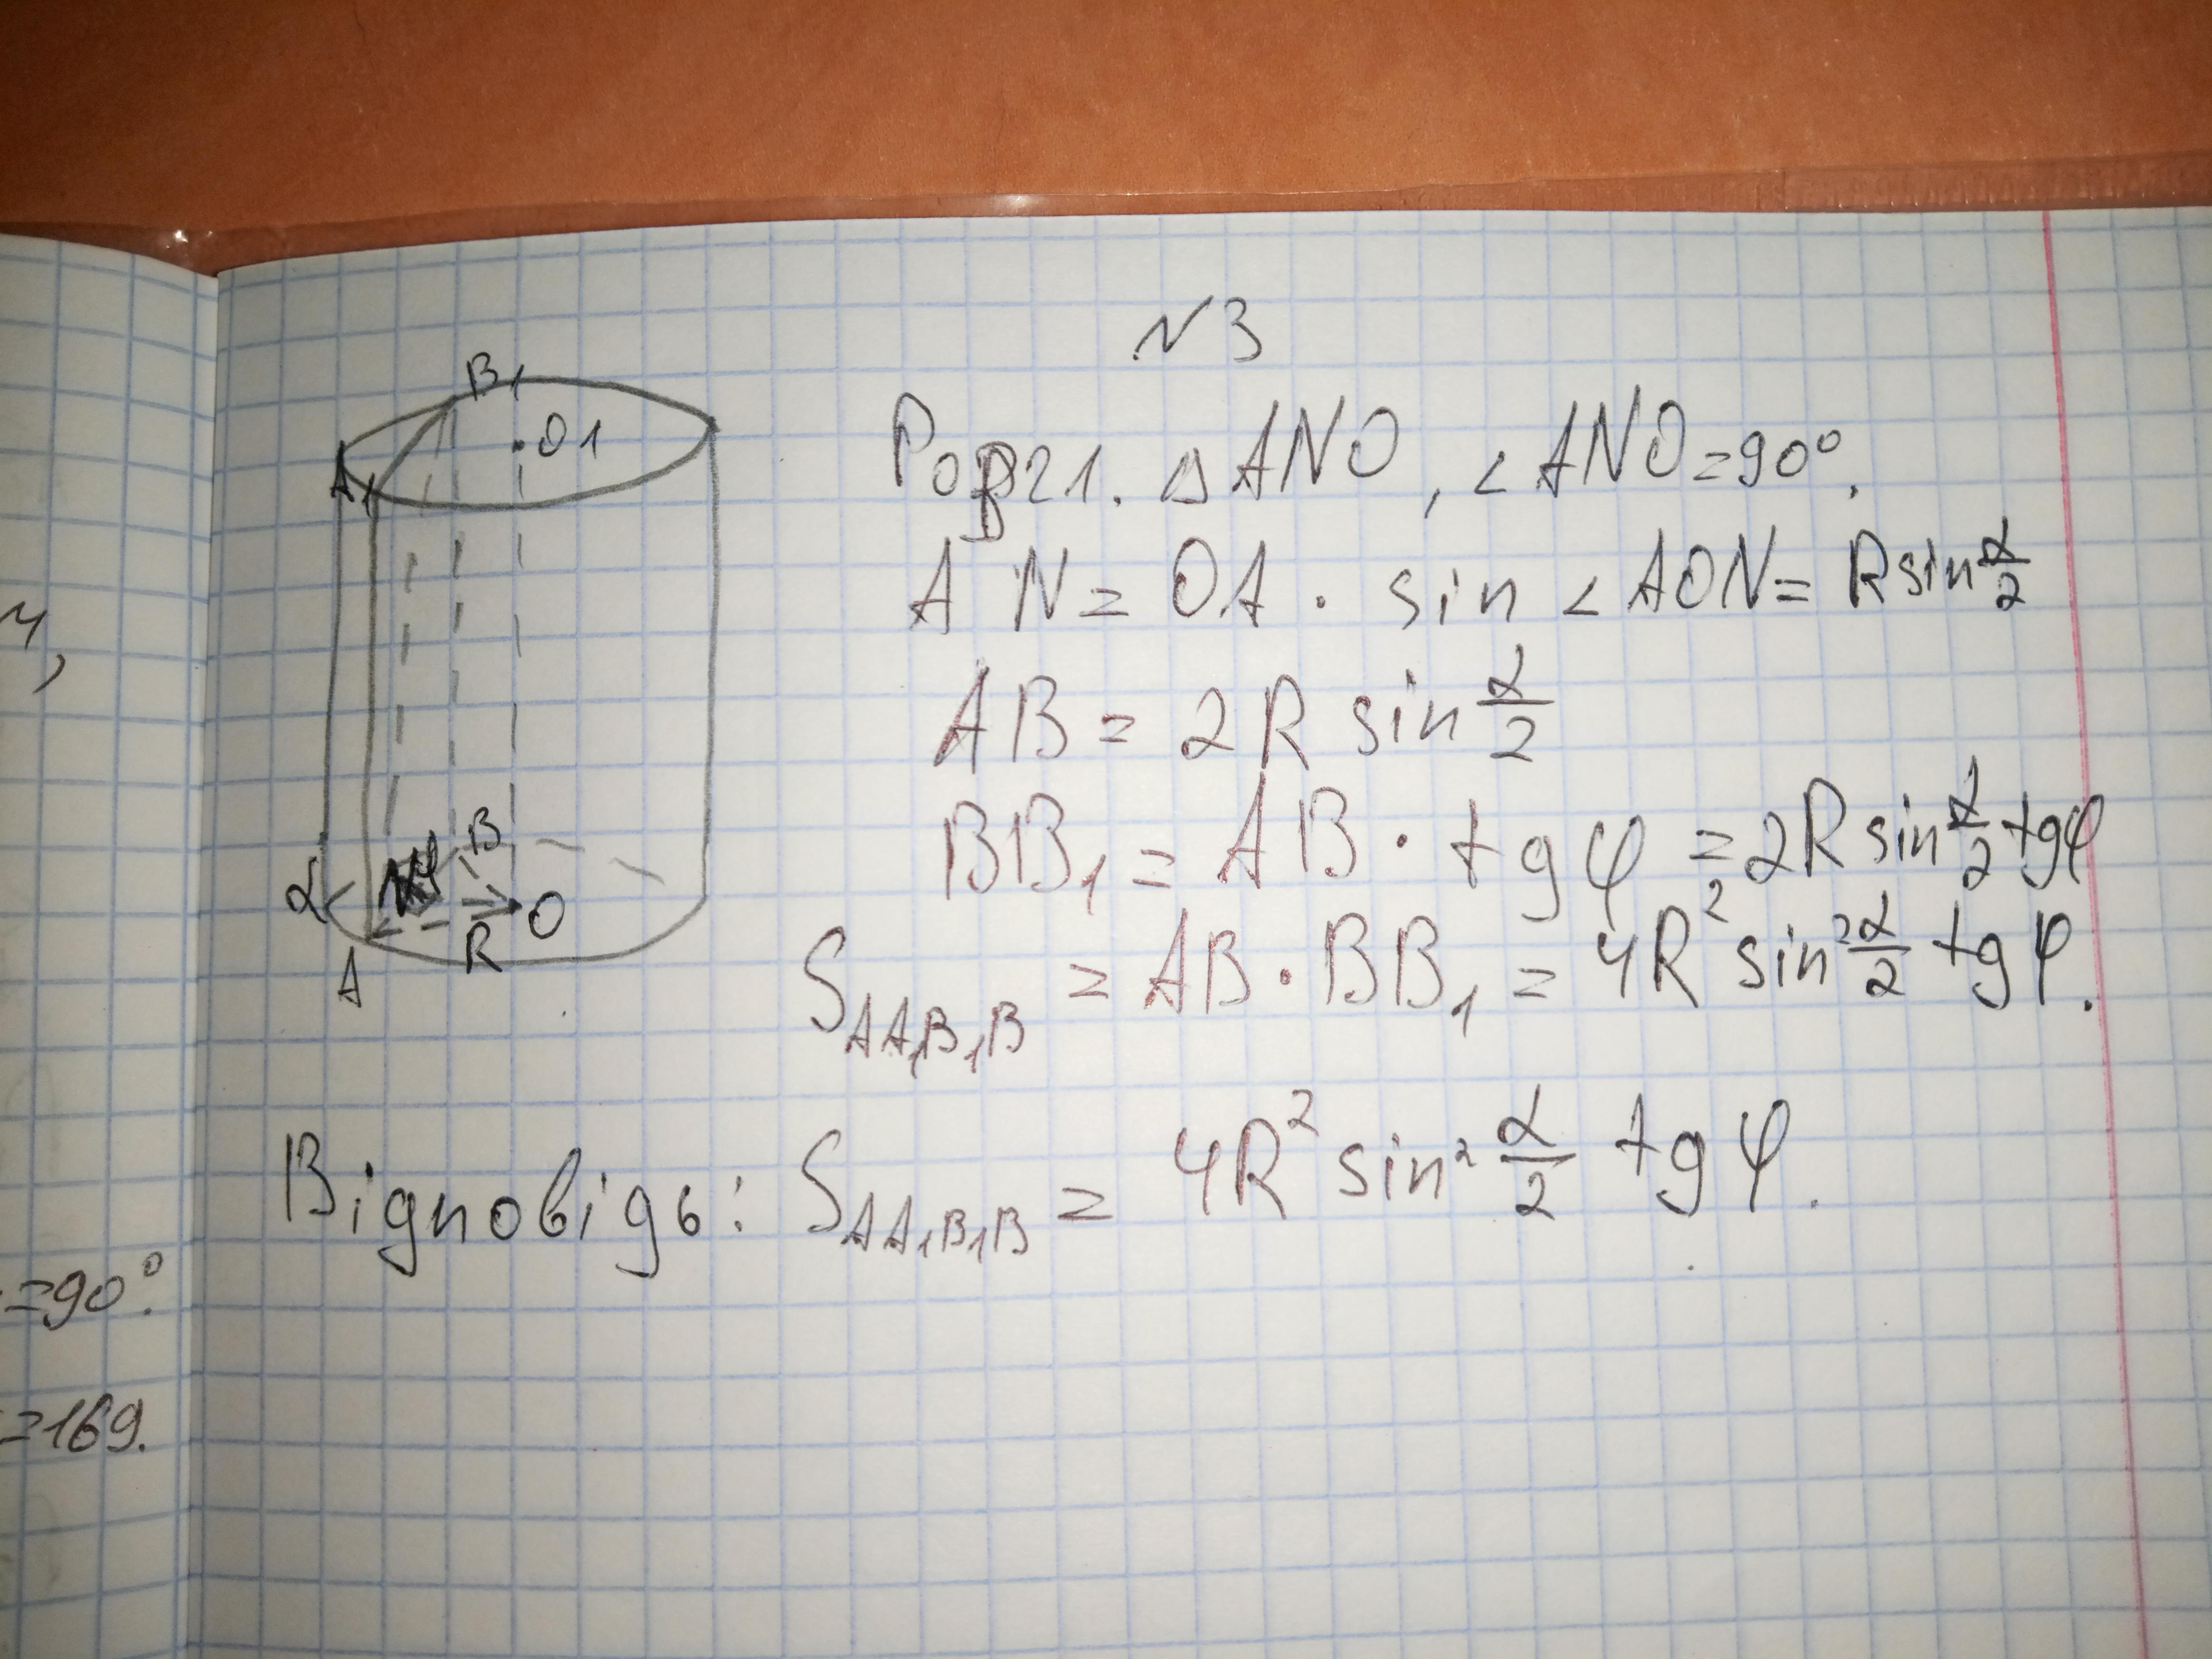 м,
=90°.
=169.
N3
B₁
A₁
O1
B
N φ
α
O
R
A
Розгл. △ANO, ∠ANO=90°.
AN = OA · sin ∠AON = R sin α/2
AB = 2R sin α/2
BB₁ = AB · tg φ = 2R sin α/2 tg φ
S_AA₁B₁B = AB · BB₁ = 4R² sin² α/2 tg φ.
Відповідь: S_AA₁B₁B = 4R² sin² α/2 tg φ.